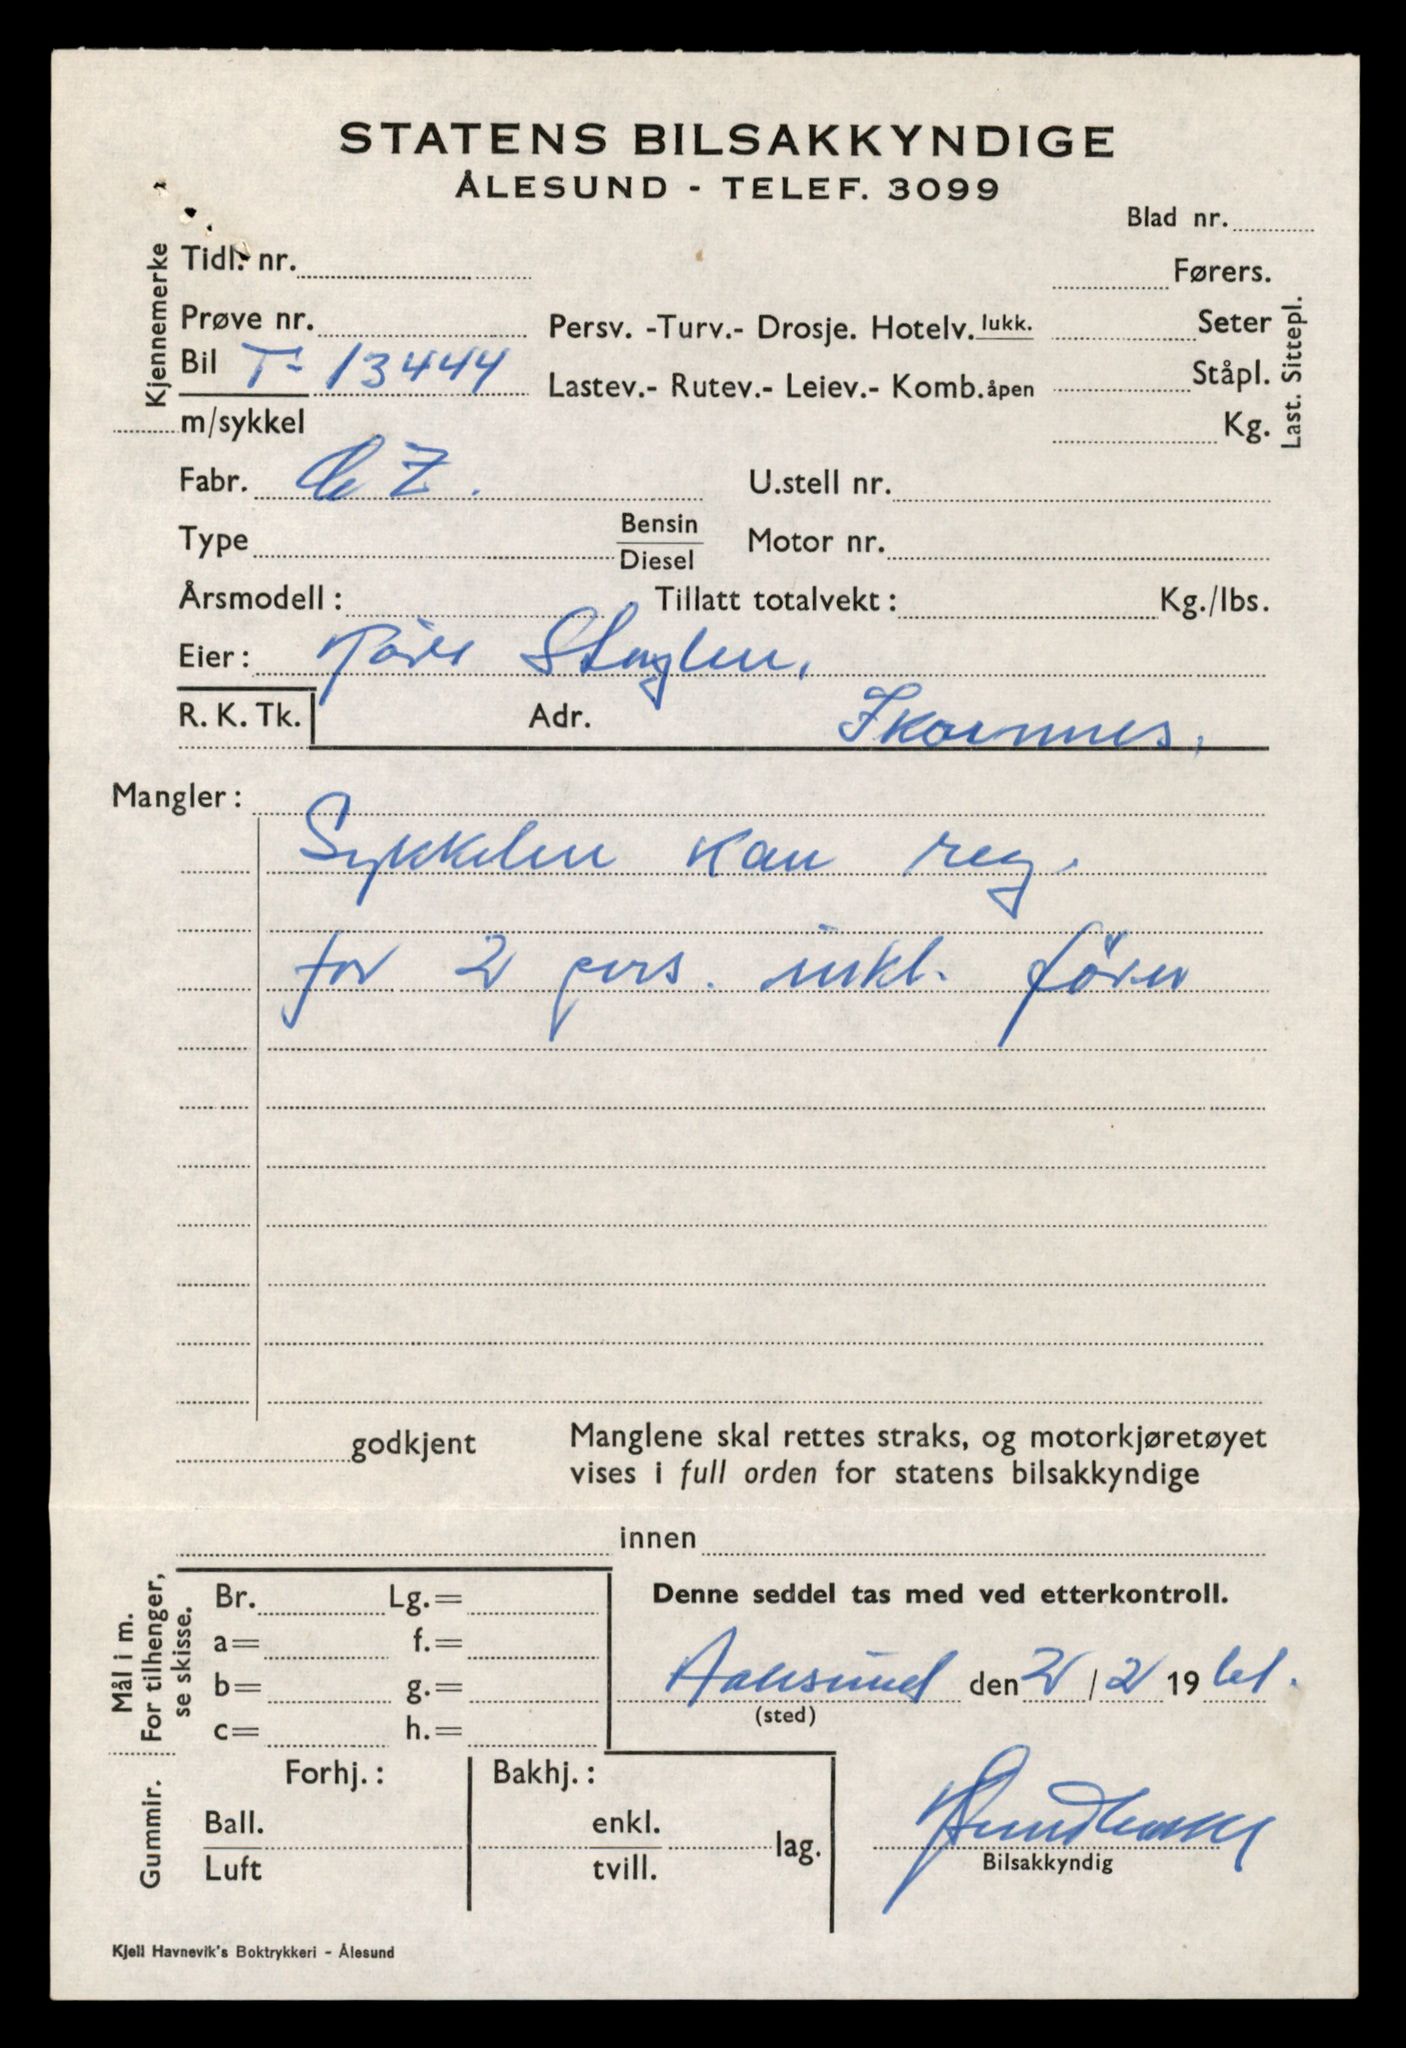 STATENS BILSAKKYNDIGE
ÅLESUND - TELEF. 3099
Blad nr.
Kjennemerke
Tidl. nr.
Førers.
Prøve nr.
Persv. -Turv.- Drosje. Hotelv. lukk.
Seter
Bil T- 13444
Lastev.- Rutev.- Leiev.- Komb. åpen
Ståpl.
m/sykkel
Kg.
Last. Sittepl.
Fabr. CZ.
U.stell nr.
Type
Bensin
Diesel
Motor nr.
Årsmodell :
Tillatt totalvekt :
Kg./lbs.
Eier: Kåre
R. K. Tk.
Adr. Ikornnes.
Mangler :
Sykkelen kan reg.
for 2 pers. inkl. fører
godkjent
Manglene skal rettes straks, og motorkjøretøyet
vises i full orden for statens bilsakkyndige
innen
Mål i m.
For tilhenger,
se skisse.
Br. Lg.=
a= f.=
b= g.=
c= h.=
Denne seddel tas med ved etterkontroll.
Aalesund den 2/2 19 61.
(sted)
Gummir.
Forhj. :
Ball.
Luft
Bakhj. :
enkl.
tvill.
lag.
Bilsakkyndig
Kjell Havnevik's Boktrykkeri - Ålesund